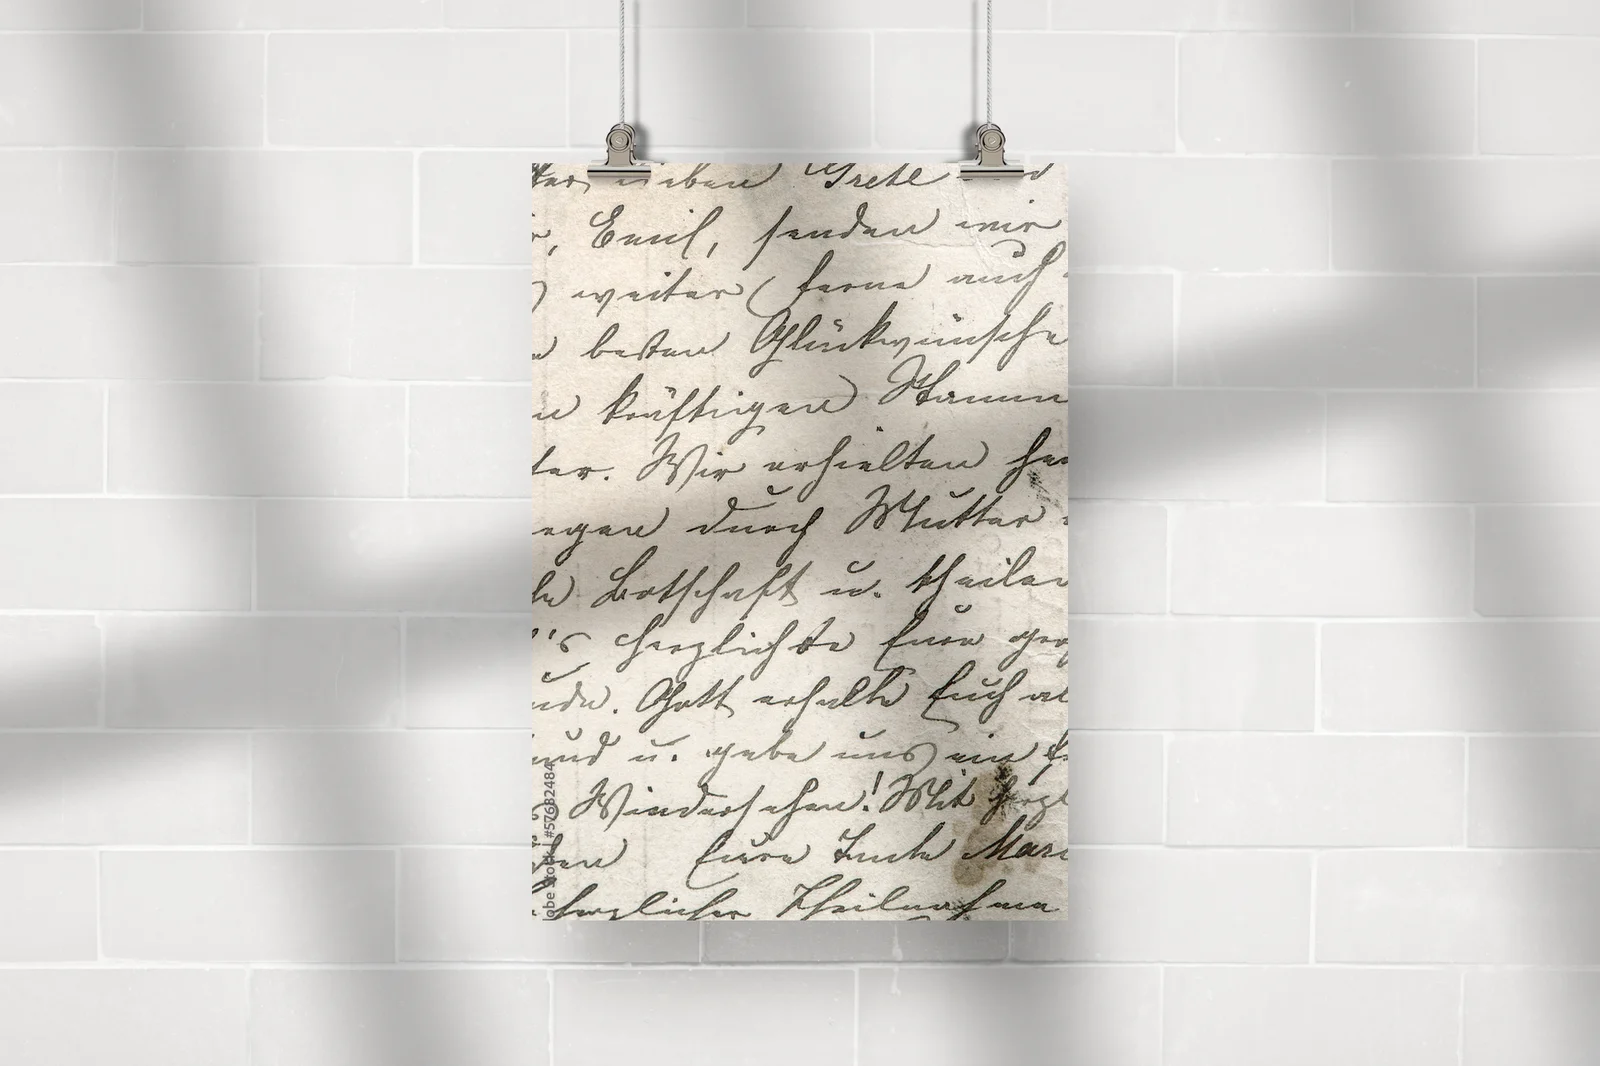 lieben Grete und
Emil, senden wir
weiter Ferne auch
besten Glückwünsche
kräftigen Stamm
ter. Wir erhielten heu
egen durch Mutter
Botschaft u. theilen
's herzlichste Eure gro
ude. Gott erhalte Euch al
und u. gebe uns ein
Wiedersehen! Mit herzl
Eure Tante Mari
herzlicher Theilnahme
obe Stock | #57682484